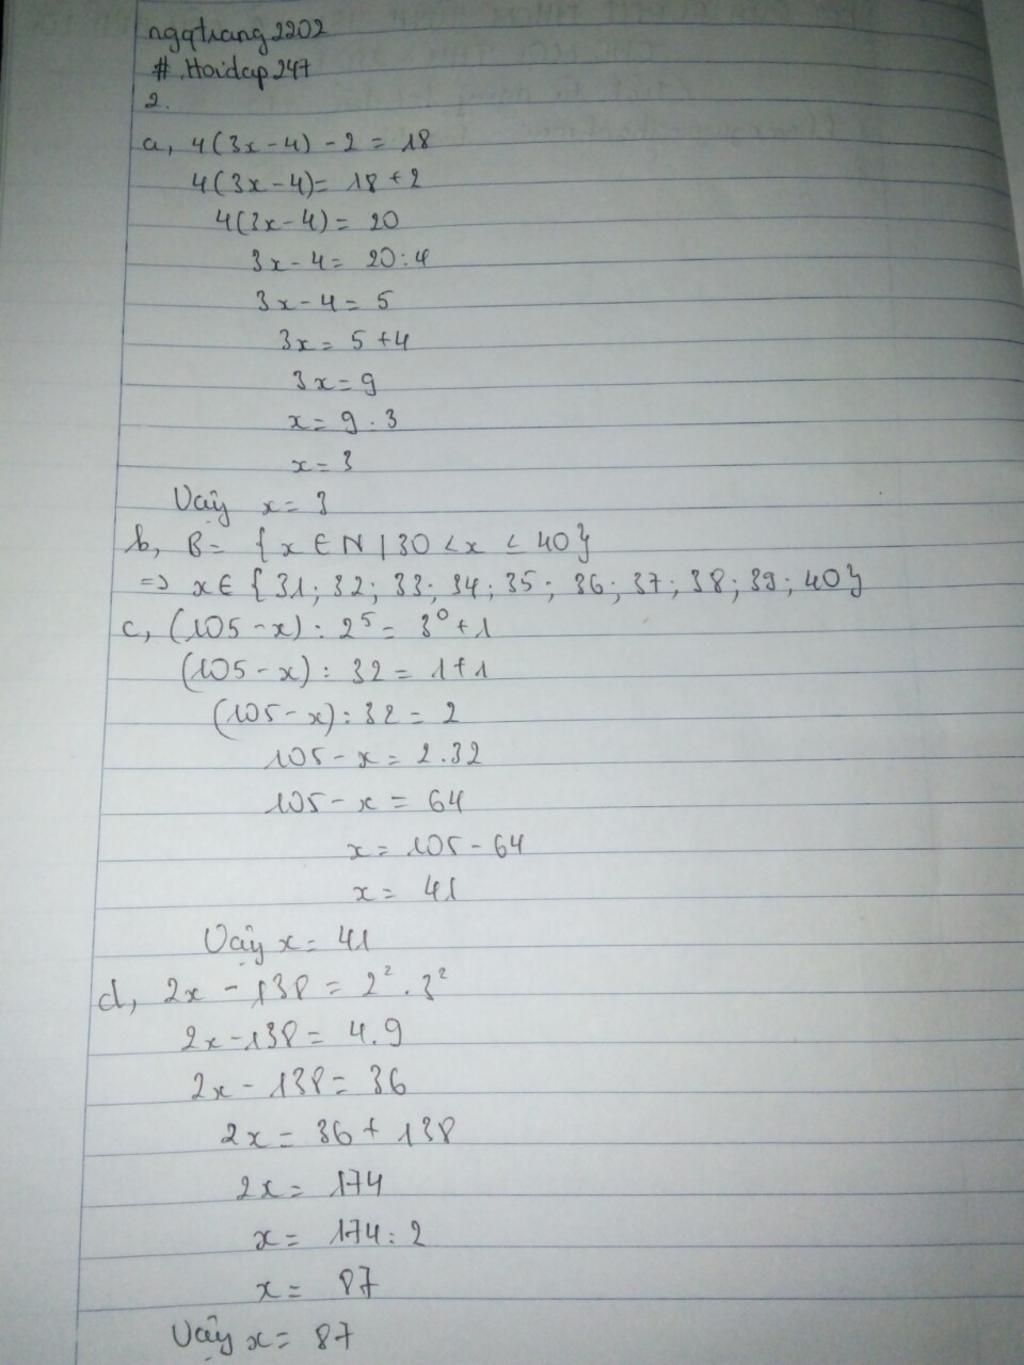 ngqtrang2202
# .Hoidap247
2.
a, 4(3x-4) - 2 = 18
4(3x-4) = 18 + 2
4(3x-4) = 20
3x - 4 = 20 : 4
3x - 4 = 5
3x = 5 + 4
3x = 9
x = 9 . 3
x = 3
Vậy x = 3
b, B = { x ∈ N | 30 < x ≤ 40 }
=> x ∈ { 31 ; 32 ; 33 ; 34 ; 35 ; 36 ; 37 ; 38 ; 39 ; 40 }
c, (105 - x) : 2⁵ = 3⁰ + 1
(105 - x) : 32 = 1 + 1
(105 - x) : 32 = 2
105 - x = 2 . 32
105 - x = 64
x = 105 - 64
x = 41
Vậy x = 41
d, 2x - 138 = 2² . 3²
2x - 138 = 4 . 9
2x - 138 = 36
2x = 36 + 138
2x = 174
x = 174 : 2
x = 87
Vậy x = 87